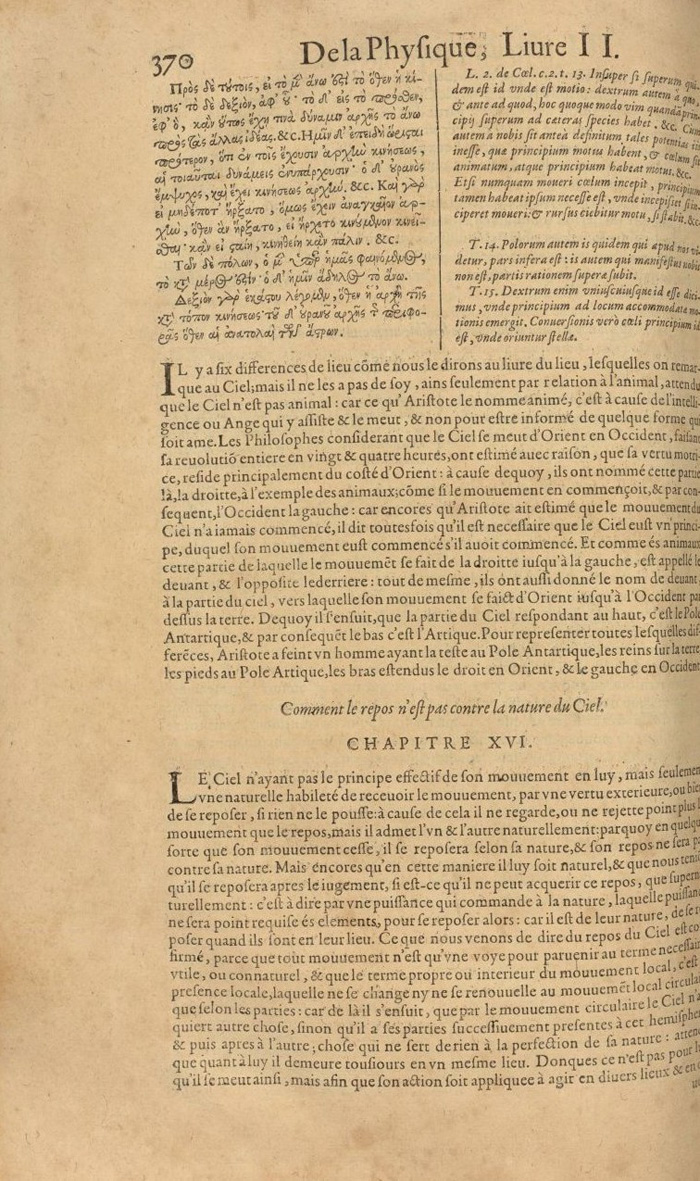 370 De la Phyſique, Liure II.
Πρὸς δὲ τούτοις, εἰ τὸ μ̃ ἄνω ὅθεν ἡ κί-
νησις· τὸ δὲ δεξιὸν, ἀφ' οὗ· τὸ δ' εἰς τὸ πρόσθεν,
ἐφ' ὃ, κἂν οὕτως ἔχῃ τινὰ δύναμιν ἀρχῆς τὸ ἄνω
πρὸς τὰς ἄλλας ἰδέας. &c. Ἡμῖν δ' ἐπειδὴ ὥρισται
πρότερον, ὅτι ἐν τοῖς ἔχουσιν ἀρχὴν κινήσεως,
αἱ τοιαῦται δυνάμεις ἐνυπάρχουσιν· ὁ δ' οὐρανὸς
ἔμψυχος, καὶ ἔχει κινήσεως ἀρχὴν. &c. Καὶ γὰρ
εἰ μηδέποτ' ἤρξατο, ὅμως ἔχειν ἀναγκαῖον ἀρ-
χὴν, ὅθεν ἂν ἤρξατο, εἰ ἤρχετο κινούμενον κινεῖ-
σθαι· κἂν εἰ σταίη, κινηθείη κἂν πάλιν. &c.
Τῶν δὲ πόλων, ὁ μ̃ ὑπὲρ ἡμᾶς φαινόμενος,
τὸ κάτω μέρος ἐστίν· ὁ δ' ἡμῖν ἄδηλος τὸ ἄνω.
Δεξιὸν γὰρ ἑκάστου λέγομεν, ὅθεν ἡ ἀρχὴ τῆς
κατὰ τόπον κινήσεως· τοῦ δ' οὐρανοῦ ἀρχὴ τῆς περιφο-
ρᾶς ὅθεν αἱ ἀνατολαὶ τῶν ἄστρων.
L. 2. de Cœl. c. 2. t. 13. Inſuper ſi ſuperum qui-
dem est id vnde est motio: dextrum autem à quo,
& ante ad quod, hoc quoque modo vim quandã prin-
cipij ſuperum ad cæteras ſpecies habet. &c. Cum
autem à nobis ſit anteà definitum tales potentias iis
ineſſe, quæ principium motus habent, & cœlum ſit
animatum, atque principium habeat motus. &c.
Etſi numquam moueri cœlum incepit, principium
tamen habeat ipſum neceſſe eſt, vnde incepiſſet ſi in-
ciperet moueri: & rurſus ciebitur motu, ſi ſtabit. &c.
T. 14. Polorum autem is quidem qui apud nos vi-
detur, pars infera eſt: is autem qui manifeſtus nobis
non est, partis rationem ſuperæ ſubit.
T. 15. Dextrum enim vniuſcuiuſque id eſſe dici-
mus, vnde principium ad locum accommodatæ mo-
tionis emergit. Conuerſionis verò cœli principium id
eſt, vnde oriuntur ſtellæ.
IL y a ſix differences de lieu cõme nous le dirons au liure du lieu, leſquelles on remar-
que au Ciel; mais il ne les a pas de ſoy, ains ſeulement par relation à l'animal, attendu
que le Ciel n'eſt pas animal: car ce qu'Ariſtote le nomme animé, c'eſt à cauſe de l'intelli-
gence ou Ange qui y aſſiſte & le meut, & non pour eſtre informé de quelque forme qui
ſoit ame. Les Philoſophes conſiderant que le Ciel ſe meut d'Orient en Occident, faiſant
ſa reuolutiõ entiere en vingt & quatre heures, ont eſtimé auec raiſon, que ſa vertu motri-
ce, reſide principalement du coſté d'Orient: à cauſe dequoy, ils ont nommé cette partie
là, la droitte, à l'exemple des animaux; cõme ſi le mouuement en commençoit, & par con-
ſequent, l'Occident la gauche: car encores qu'Ariſtote ait eſtimé que le mouuement du
Ciel n'a iamais commencé, il dit toutesfois qu'il eſt neceſſaire que le Ciel euſt vn princi-
pe, duquel ſon mouuement euſt commencé s'il auoit commencé. Et comme és animaux
cette partie de laquelle le mouuemẽt ſe fait de la droitte iuſqu'à la gauche, eſt appellé le
deuant, & l'oppoſite le derriere: tout de meſme, ils ont auſſi donné le nom de deuant
à la partie du ciel, vers laquelle ſon mouuement ſe faict d'Orient iuſqu'à l'Occident par
deſſus la terre. Dequoy il s'enſuit, que la partie du Ciel reſpondant au haut, c'eſt le Pole
Antartique, & par conſequẽt le bas c'eſt l'Artique. Pour repreſenter toutes leſquelles dif-
ferẽces, Ariſtote a feint vn homme ayant la teſte au Pole Antartique, les reins ſur la terre
les pieds au Pole Artique, les bras eſtendus le droit en Orient, & le gauche en Occident
Comment le repos n'eſt pas contre la nature du Ciel.
CHAPITRE XVI.
LE Ciel n'ayant pas le principe effectif de ſon mouuement en luy, mais ſeulemen
vne naturelle habileté de receuoir le mouuement, par vne vertu exterieure, ou bie
de ſe repoſer, ſi rien ne le pouſſe: à cauſe de cela il ne regarde, ou ne rejette point plus l
mouuement que le repos, mais il admet l'vn & l'autre naturellement: parquoy en quelqu
ſorte que ſon mouuement ceſſe, il ſe repoſera ſelon ſa nature, & ſon repos ne ſera p
contre ſa nature. Mais encores qu'en cette maniere il luy ſoit naturel, & que nous
qu'il ſe repoſera apres le iugement, ſi eſt-ce qu'il ne peut acquerir ce repos, que ſupern
turellement: c'eſt à dire par vne puiſſance qui commande à la nature, laquelle puiſſan
ne ſera point requiſe és elements, pour ſe repoſer alors: car il eſt de leur nature, de ſe r
poſer quand ils ſont en leur lieu. Ce que nous venons de dire du repos du Ciel eſt co
firmé, parce que tout mouuement n'eſt qu'vne voye pour paruenir au terme neceſſair
vtile, ou connaturel, & que le terme propre ou interieur du mouuement local, c'eſt
preſence locale, laquelle ne ſe change ny ne ſe renouuelle au mouuemẽt local circulai
que ſelon les parties: car de là il s'enſuit, que par le mouuement circulaire le Ciel n'a
quiert autre choſe, ſinon qu'il a ſes parties ſucceſſiuement preſentes à cet hemiſpher
& puis apres à l'autre; choſe qui ne ſert de rien à la perfection de ſa nature: atten
que quant à luy il demeure touſiours en vn meſme lieu. Donques ce n'eſt pas pour
qu'il ſe meut ainſi, mais afin que ſon action ſoit appliquee à agir en diuers lieux & en